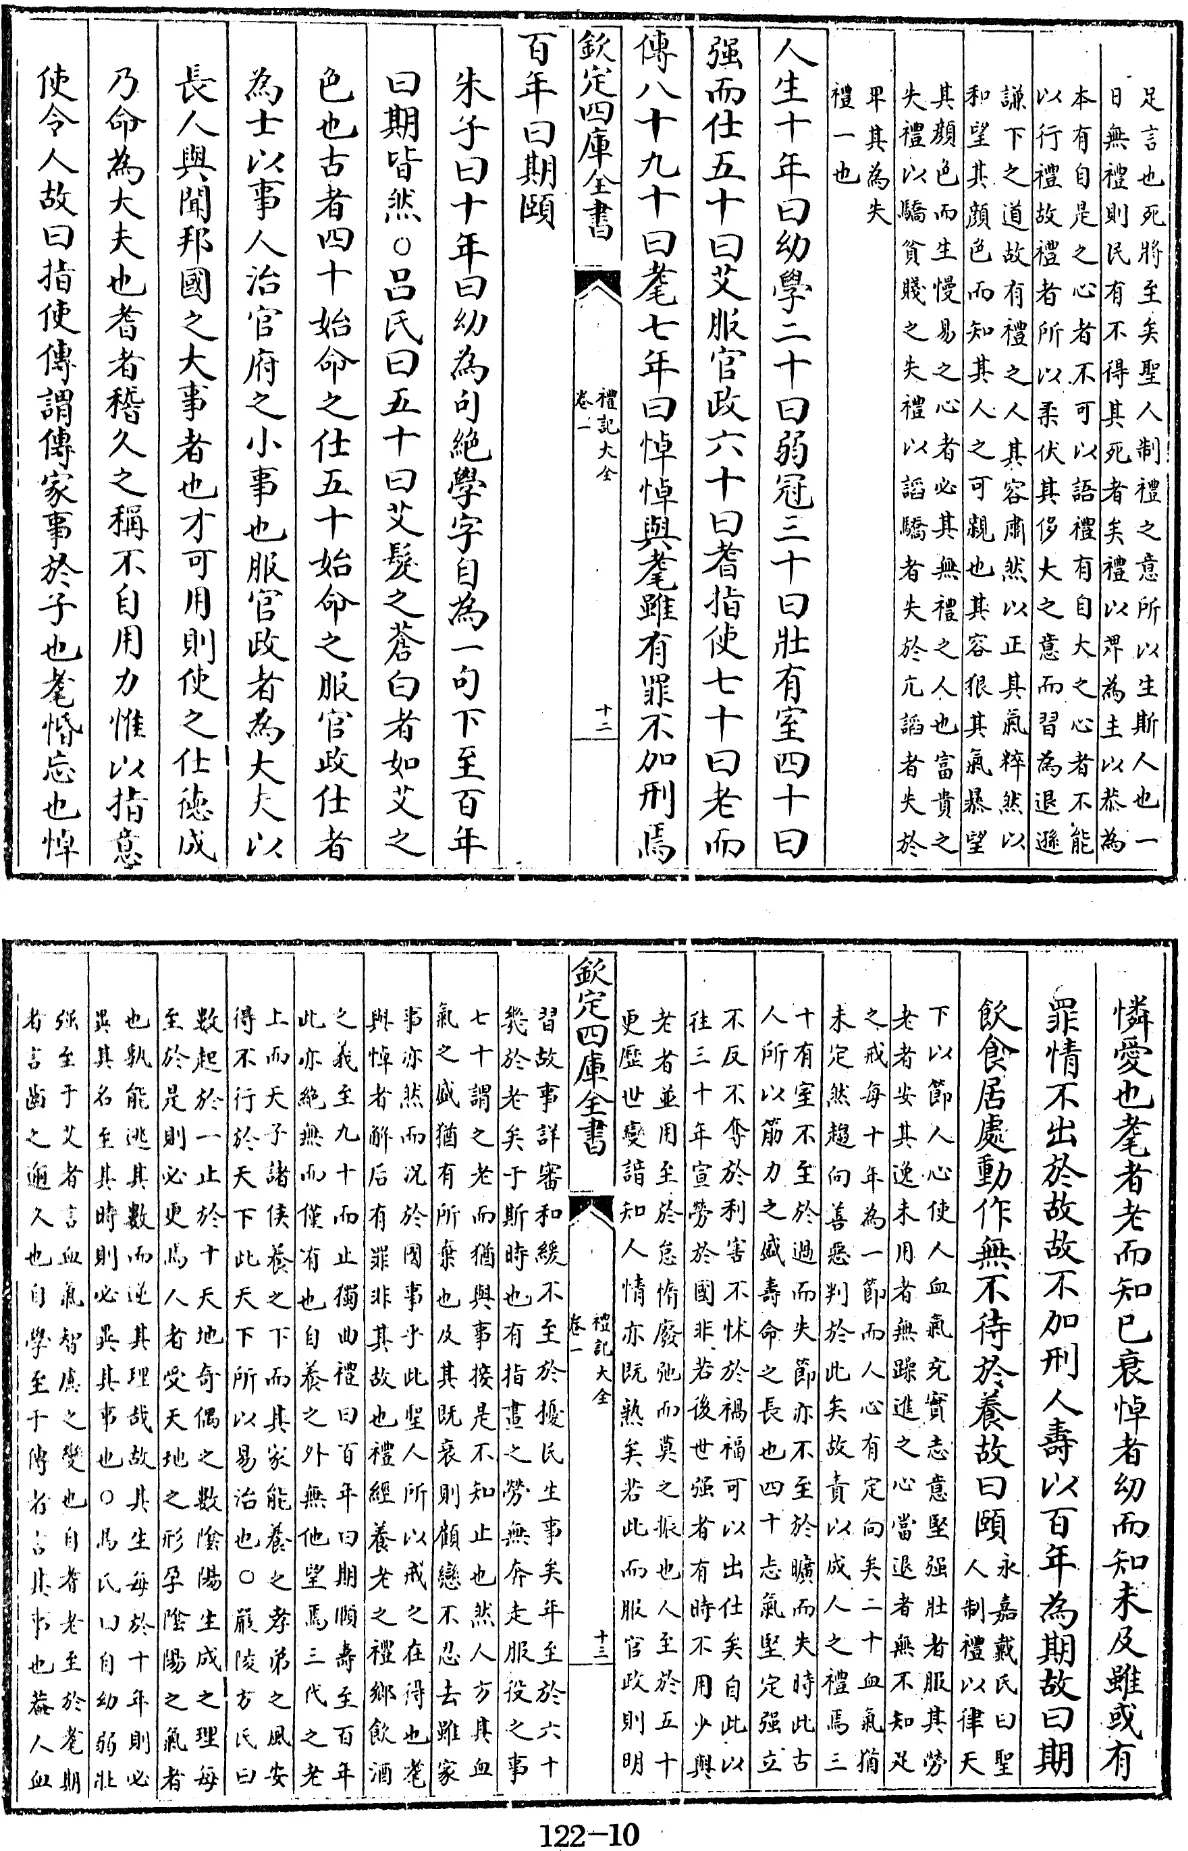 足言也死將至矣聖人制禮之意所以生斯人也一
日無禮則民有不得其死者矣禮以畀為主以恭為
本有自是之心者不可以語禮有自大之心者不能
以行禮故禮者所以柔伏其侈大之意而習為退遜
謙下之道故有禮之人其容肅然以正其氣粹然以
和望其顔色而知其人之可親也其容狠其氣暴望
其顔色而生慢易之心者必其無禮之人也富貴之
失禮以驕貧賤之失禮以謟驕者失於亢謟者失於
畀其為失
禮一也
人生十年曰幼學二十曰弱冠三十曰壯有室四十曰
强而仕五十曰艾服官政六十曰耆指使七十曰老而
傳八十九十曰耄七年曰悼悼與耄雖有罪不加刑焉
欽定四庫全書
禮記大全
卷一
十二
百年曰期頤
朱子曰十年曰幼為句絶學字自為一句下至百年
曰期皆然○吕氏曰五十曰艾髮之蒼白者如艾之
色也古者四十始命之仕五十始命之服官政仕者
為士以事人治官府之小事也服官政者為大夫以
長人與聞邦國之大事者也才可用則使之仕德成
乃命為大夫也耆者稽久之稱不自用力惟以指意
使令人故曰指使傳謂傳家事於子也耄惛忘也悼
憐愛也耄者老而知已衰悼者幼而知未及雖或有
罪情不出於故故不加刑人壽以百年為期故曰期
飲食居處動作無不待於養故曰頤
永嘉戴氏曰聖
人制禮以律天
下以節人心使人血氣充實志意堅强壯者服其勞
老者安其逸未用者無躁進之心當退者無不知足
之戒每十年為一節而人心有定向矣二十血氣猶
未定然趨向善惡判於此矣故責以成人之禮焉三
十有室不至於過而失節亦不至於曠而失時此古
人所以筋力之盛壽命之長也四十志氣堅定强立
不反不奪於利害不怵於禍福可以出仕矣自此以
往三十年宣勞於國非若後世强者有時不用少與
老者並用至於怠惰廢弛而莫之振也人至於五十
更歴世變諳知人情亦既熟矣若此而服官政則明
欽定四庫全書
禮記大全
卷一
十三
習故事詳審和緩不至於擾民生事矣年至於六十
幾於老矣于斯時也有指畫之勞無奔走服役之事
七十謂之老而猶與事接是不知止也然人方其血
氣之盛猶有所棄也及其既衰則顧戀不忍去雖家
事亦然而况於國事乎此聖人所以戒之在得也耄
與悼者觧后有罪非其故也禮經養老之禮鄉飲酒
之義至九十而止獨曲禮曰百年曰期頤壽至百年
此亦絶無而僅有也自養之外無他望焉三代之老
上而天子諸侯養之下而其家能養之孝弟之風安
得不行於天下此天下所以易治也○嚴陵方氏曰
數起於一止於十天地奇偶之數隂陽生成之理每
至於是則必更焉人者受天地之形孕隂陽之氣者
也孰能逃其數而逆其理哉故其生每於十年則必
異其名至其時則必異其事也○馬氏曰自幼弱壯
强至于艾者言血氣智慮之變也自耆老至於耄期
者言齒之逾久也自學至于傳者言其事也葢人血
122-10